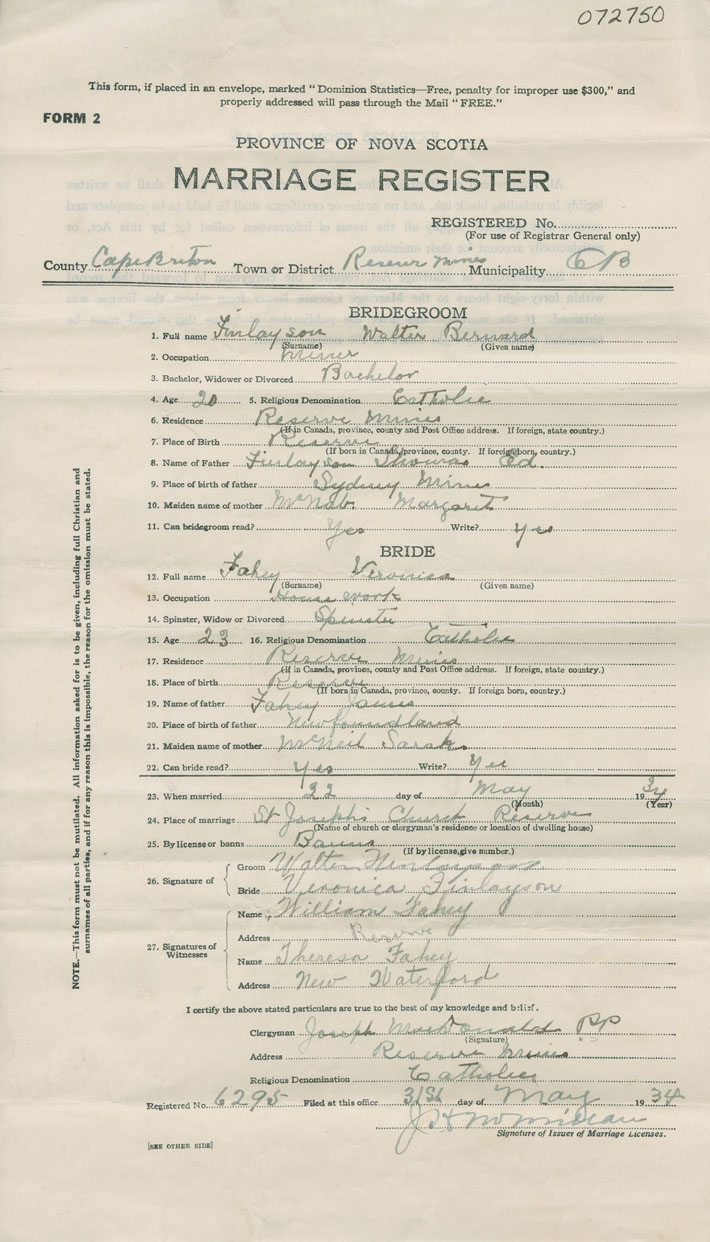 072750
This form, if placed in an envelope, marked "Dominion Statistics—Free, penalty for improper use $300," and
properly addressed will pass through the Mail "FREE."
FORM 2
PROVINCE OF NOVA SCOTIA
MARRIAGE REGISTER
REGISTERED No.
(For use of Registrar General only)
County Cape Breton Town or District Reserve Mines Municipality CB
BRIDEGROOM
1. Full name Finlayson Walter Bernard
(Surname) (Given name)
2. Occupation Miner
3. Bachelor, Widower or Divorced Bachelor
4. Age 20 5. Religious Denomination Catholic
6. Residence Reserve Mines
(If in Canada, province, county and Post Office address. If foreign, state country.)
7. Place of Birth Reserve
(If born in Canada, province, county. If foreign born, country.)
8. Name of Father Finlayson Thomas Ed.
9. Place of birth of father Sydney Mines
10. Maiden name of mother McNab. Margaret
11. Can bridegroom read? Yes Write? Yes
BRIDE
12. Full name Fahey Veronica
(Surname) (Given name)
13. Occupation House work
14. Spinster, Widow or Divorced Spinster
15. Age 23 16. Religious Denomination Catholic
17. Residence Reserve Mines
(If in Canada, province, county and Post Office address. If foreign, state country.)
18. Place of birth Reserve
(If born in Canada, province, county. If foreign born, country.)
19. Name of father Fahey James
20. Place of birth of father Newfoundland
21. Maiden name of mother McNeil Sarah
22. Can bride read? Yes Write? Yes
23. When married 22 day of May 1934
(Month) (Year)
24. Place of marriage St Joseph's Church Reserve
(Name of church or clergyman's residence or location of dwelling house)
25. By license or banns Banns
(If by license, give number.)
26. Signature of
Groom Walter Finlayson
Bride Veronica Finlayson
27. Signatures of Witnesses
Name William Fahey
Address Reserve
Name Theresa Fahey
Address New Waterford
I certify the above stated particulars are true to the best of my knowledge and belief.
Clergyman Joseph MacDonald PP
(Signature)
Address Reserve Mines
Religious Denomination Catholic
Registered No. 6295 Filed at this office 31st day of May 1934
Signature of Issuer of Marriage Licenses.
[SEE OTHER SIDE]
NOTE.—This form must not be mutilated. All information asked for is to be given, including full Christian and
surnames of all parties, and if for any reason this is impossible, the reason for the omission must be stated.